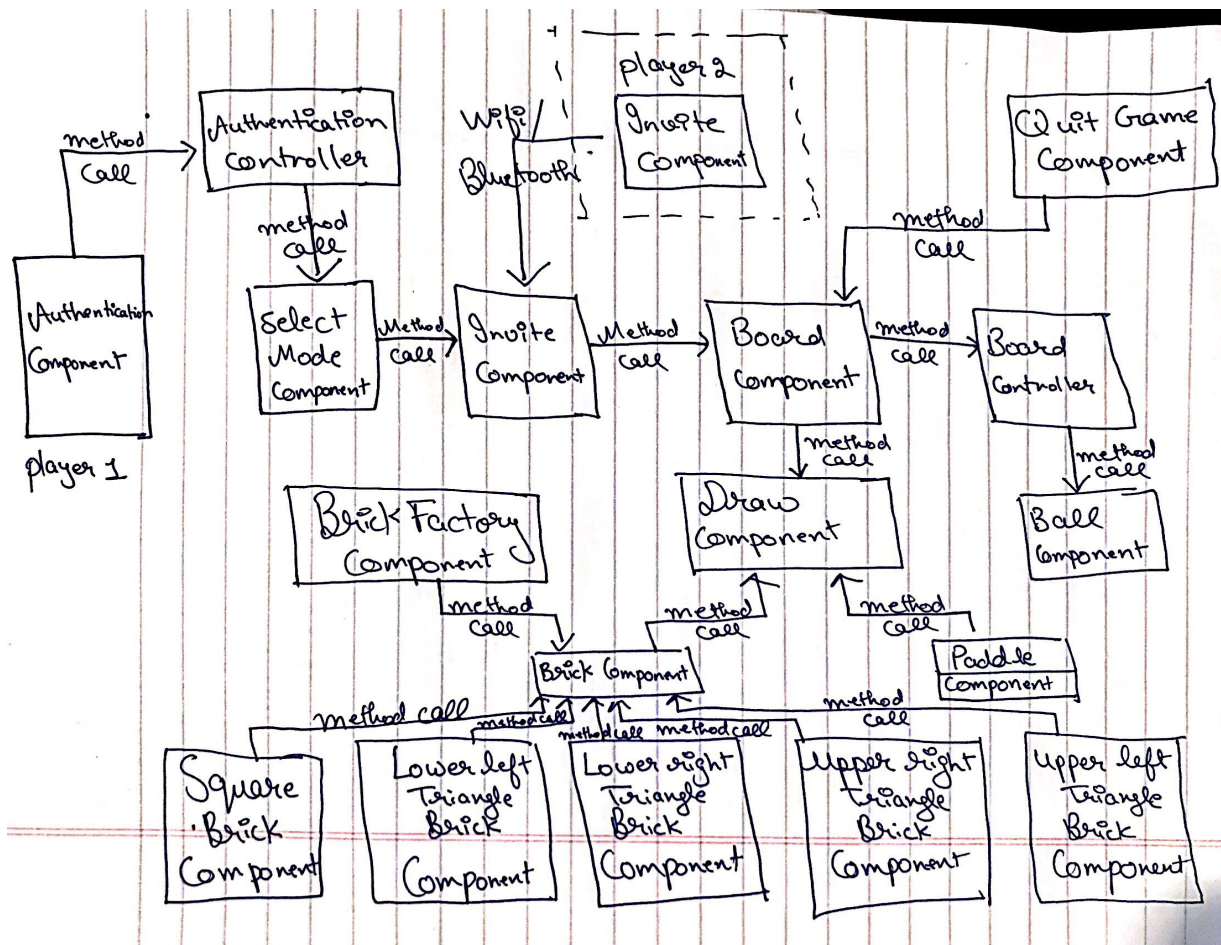 player 2
Authentication
Controller
method
call
Wifi/
Bluetooth
Invite
Component
Quit Game
Component
method
call
method
call
Authentication
Component
player 1
Select
Mode
Component
Method
call
Invite
Component
Method
call
Board
Component
method
call
Board
Controller
method
call
method
call
Brick Factory
Component
Draw
Component
Ball
Component
method
call
method
call
method
call
Brick Component
Paddle
Component
method call
method call
method call
method call
method
call
Square
Brick
Component
Lower left
Triangle
Brick
Component
Lower right
Triangle
Brick
Component
Upper right
Triangle
Brick
Component
Upper left
Triangle
Brick
Component